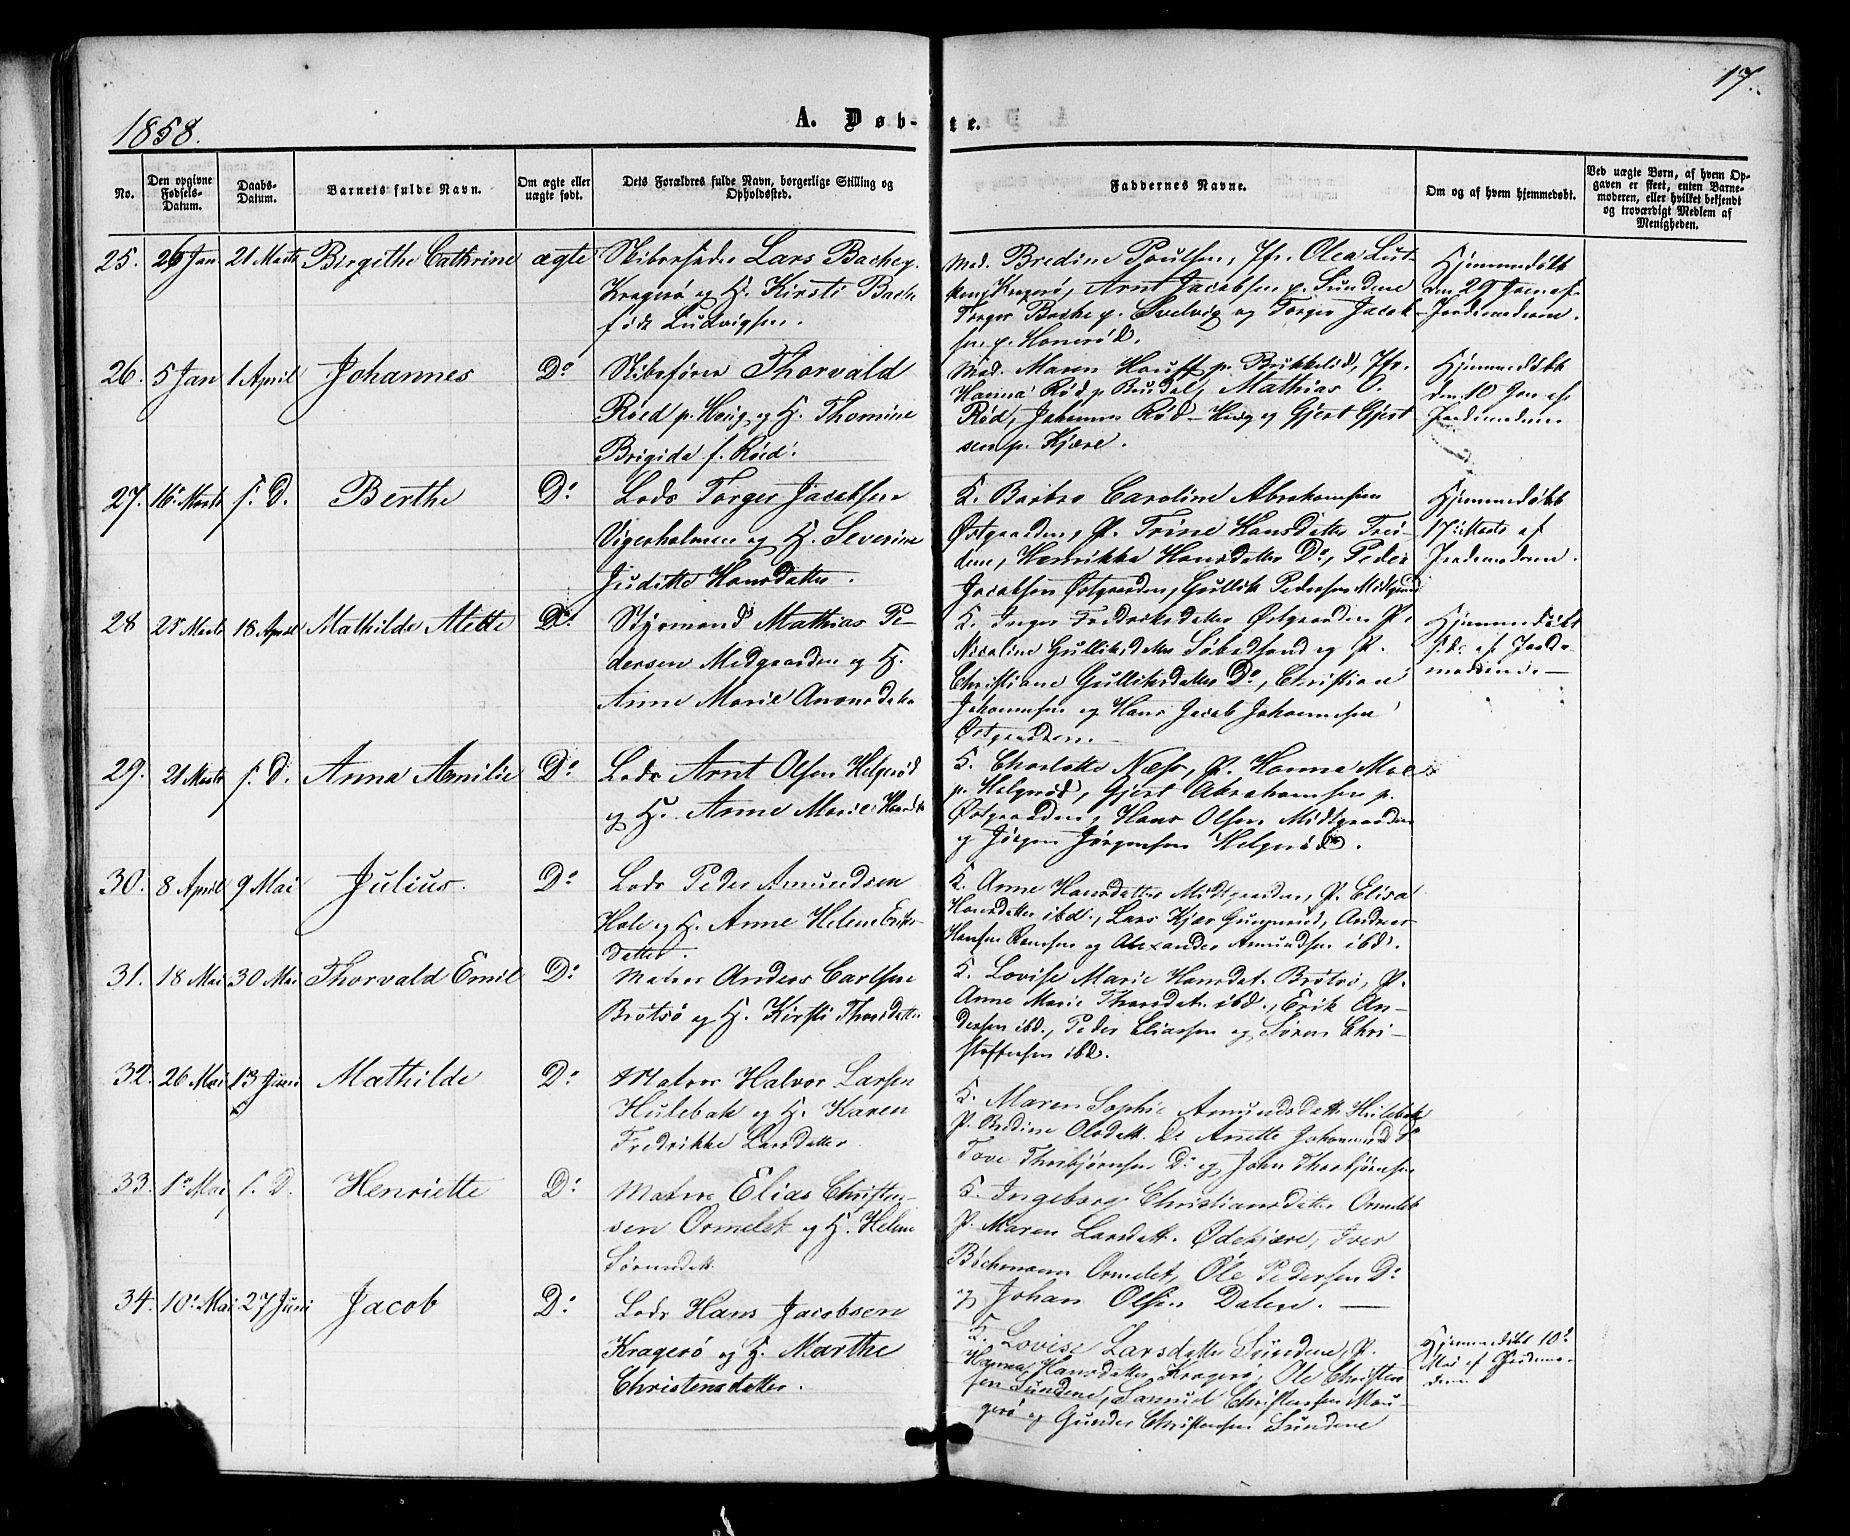 17.
1858.
A. Døb-te.
No.
Den opgivne Fødsels-Datum.
Daabs-Datum.
Barnets fulde Navn.
Om ægte eller uægte født.
Dets Forældres fulde Navn, borgerlige Stilling og Opholdssted.
Faddernes Navne.
Om og af hvem hjemmedøbt.
Ved uægte Børn, af hvem Opgaven er skeet, enten Barnemoderen, eller hvilket bekjendt og troværdigt Medlem af Menigheden.
25. 26 Jan 21 Marts Birgithe Cathrine ægte
Lars Bache p.
Kragerø og H. Kirsti Bache
født Ludvigsen.
Mad. Bredine Poulsen, Jfr. Olea Lut-
Kragerø, Arnt Jacobsen p. Sundene
Torger Bache p. Svelvig og Torger Jacob-
sen p. Honerød.
Hjemmedøbt
den 29 Jan. af
Jordemoderen.
26. 5 Jan 1 April Johannes Do
Skibsfører Thorvald
Røed p. Herig og H. Thomine
Brigida f. Røed.
Mad. Maren Houff p. Brekkelid, Jfr.
Hanna Rød p. Brudal, Mathias O.
Rød, Johannes Rød og Gjert Gjert
sen p. Kjære.
Hjemmedøbt
den 10 Jan af
Jordemoderen
27. 16 Marts s. D. Berthe Do
Lods Torger Jacobsen
Vigerholmen og H. Severine
Juditte Hansdatter.
K. Barbro Caroline Abrahamsen
Østgaarden, P. Trine Hansdatter
Henrikke Hansdatter Do, Peder
Jacobsen Østgaarden, Gullik Pedersen Midtgaard
Hjemmedøbt
17 Marts af
Jordemoderen.
28 25 Marts 18 April Mathilde Alette Do.
Styrmand Mathias Pe-
dersen Medgaarden og H.
Anne Marie Anonsdatter
K. Inger Fredriksdatter Østgaarden P.
Nicoline Gulliksdatter og P.
Christiane Gulliksdatter Do, Christian
Johannesen og Hans Jacob Johannesen
Østgaarden.
Hjemmedøbt
af Jorde-
moderen
29. 21 Marts s. D. Anna Amilie Do
Lods Arnt Olsen Helgerød
og H. Anne Marie Hansdt
K. Charlotte Næss, P. Hanna Moe
p. Helgerød, Gjert Abrahamsen p.
Østgaarden, Hans Olsen Midtgaarden
og Jørgen Jørgensen Helgerød.
30. 8 April 9 Mai Julius. Do
Lods Peder Amundsen
Hole og H. Anne Helene Eriks-
datter.
K. Anne Hansdatter Midtgaarden, P. Elisa
Hansdatter ibd., Lars Kjær, Andreas
Hansen og Alexander Amundsen ibd.
31. 18 Mai 30 Mai Thorvald Emil Do
Matros Anders Carlsen
Brøtsø og H. Kirsti Thorsdatter
K. Lovise Marie Hansdat. Brøtsø, P.
Anne Marie Thorsdat. ibd., Erik An-
dersen ibd., Peder Eliassen og Søren Chri-
stoffersen ibd.
32. 26 Mai 13 Juni Mathilde Do
Matros Halvor Larsen
Hulebak og H. Karen
Fredrikke Larsdatter
K. Maren Sophie Amundsdatt. Hulebak
P. Bredine Olsdatt. Do Anette Johannesd. Do
Tove Thorbjørnsen Do og John Thorbjørnsen
33. 1 Mai s. D. Henriette Do
Matros Elias Christen-
sen Ormelet og H. Helene
Sørensdatt.
K. Ingeborg Christiansdatter Ormelet
P. Maren Larsdatt. Ødekjære, Iver
Bachmann Ormelet, Ole Pedersen Do
og Johan Olsen Dalene.
34. 10 Mai 27 Juni Jacob Do
Lods Hans Jacobsen
Kragerø og H. Marthe
Christensdatter.
K. Lovise Larsdatter Sundene, P.
Hanna Hansdatter Kragerø, Ole Christen
sen Sundene, Samuel Christensen Mau-
gerø og Gunder Christensen Sundene
Hjemmedøbt 10
Mai af Jordemo-
deren